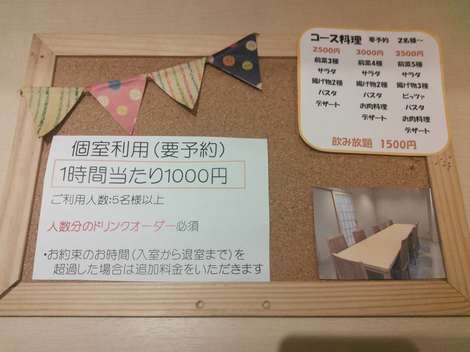 コース料理 要予約 2名様~
2500円 3000円 3500円
前菜3種 前菜4種 前菜5種
サラダ サラダ サラダ
揚げ物2種 揚げ物2種 揚げ物3種
パスタ パスタ ピッツァ
デザート お肉料理 パスタ
デザート お肉料理
デザート
飲み放題 1500円
個室利用(要予約)
1時間当たり1000円
ご利用人数:5名様以上
人数分のドリンクオーダー必須
・お約束のお時間(入室から退室まで)を
超過した場合は追加料金をいただきます